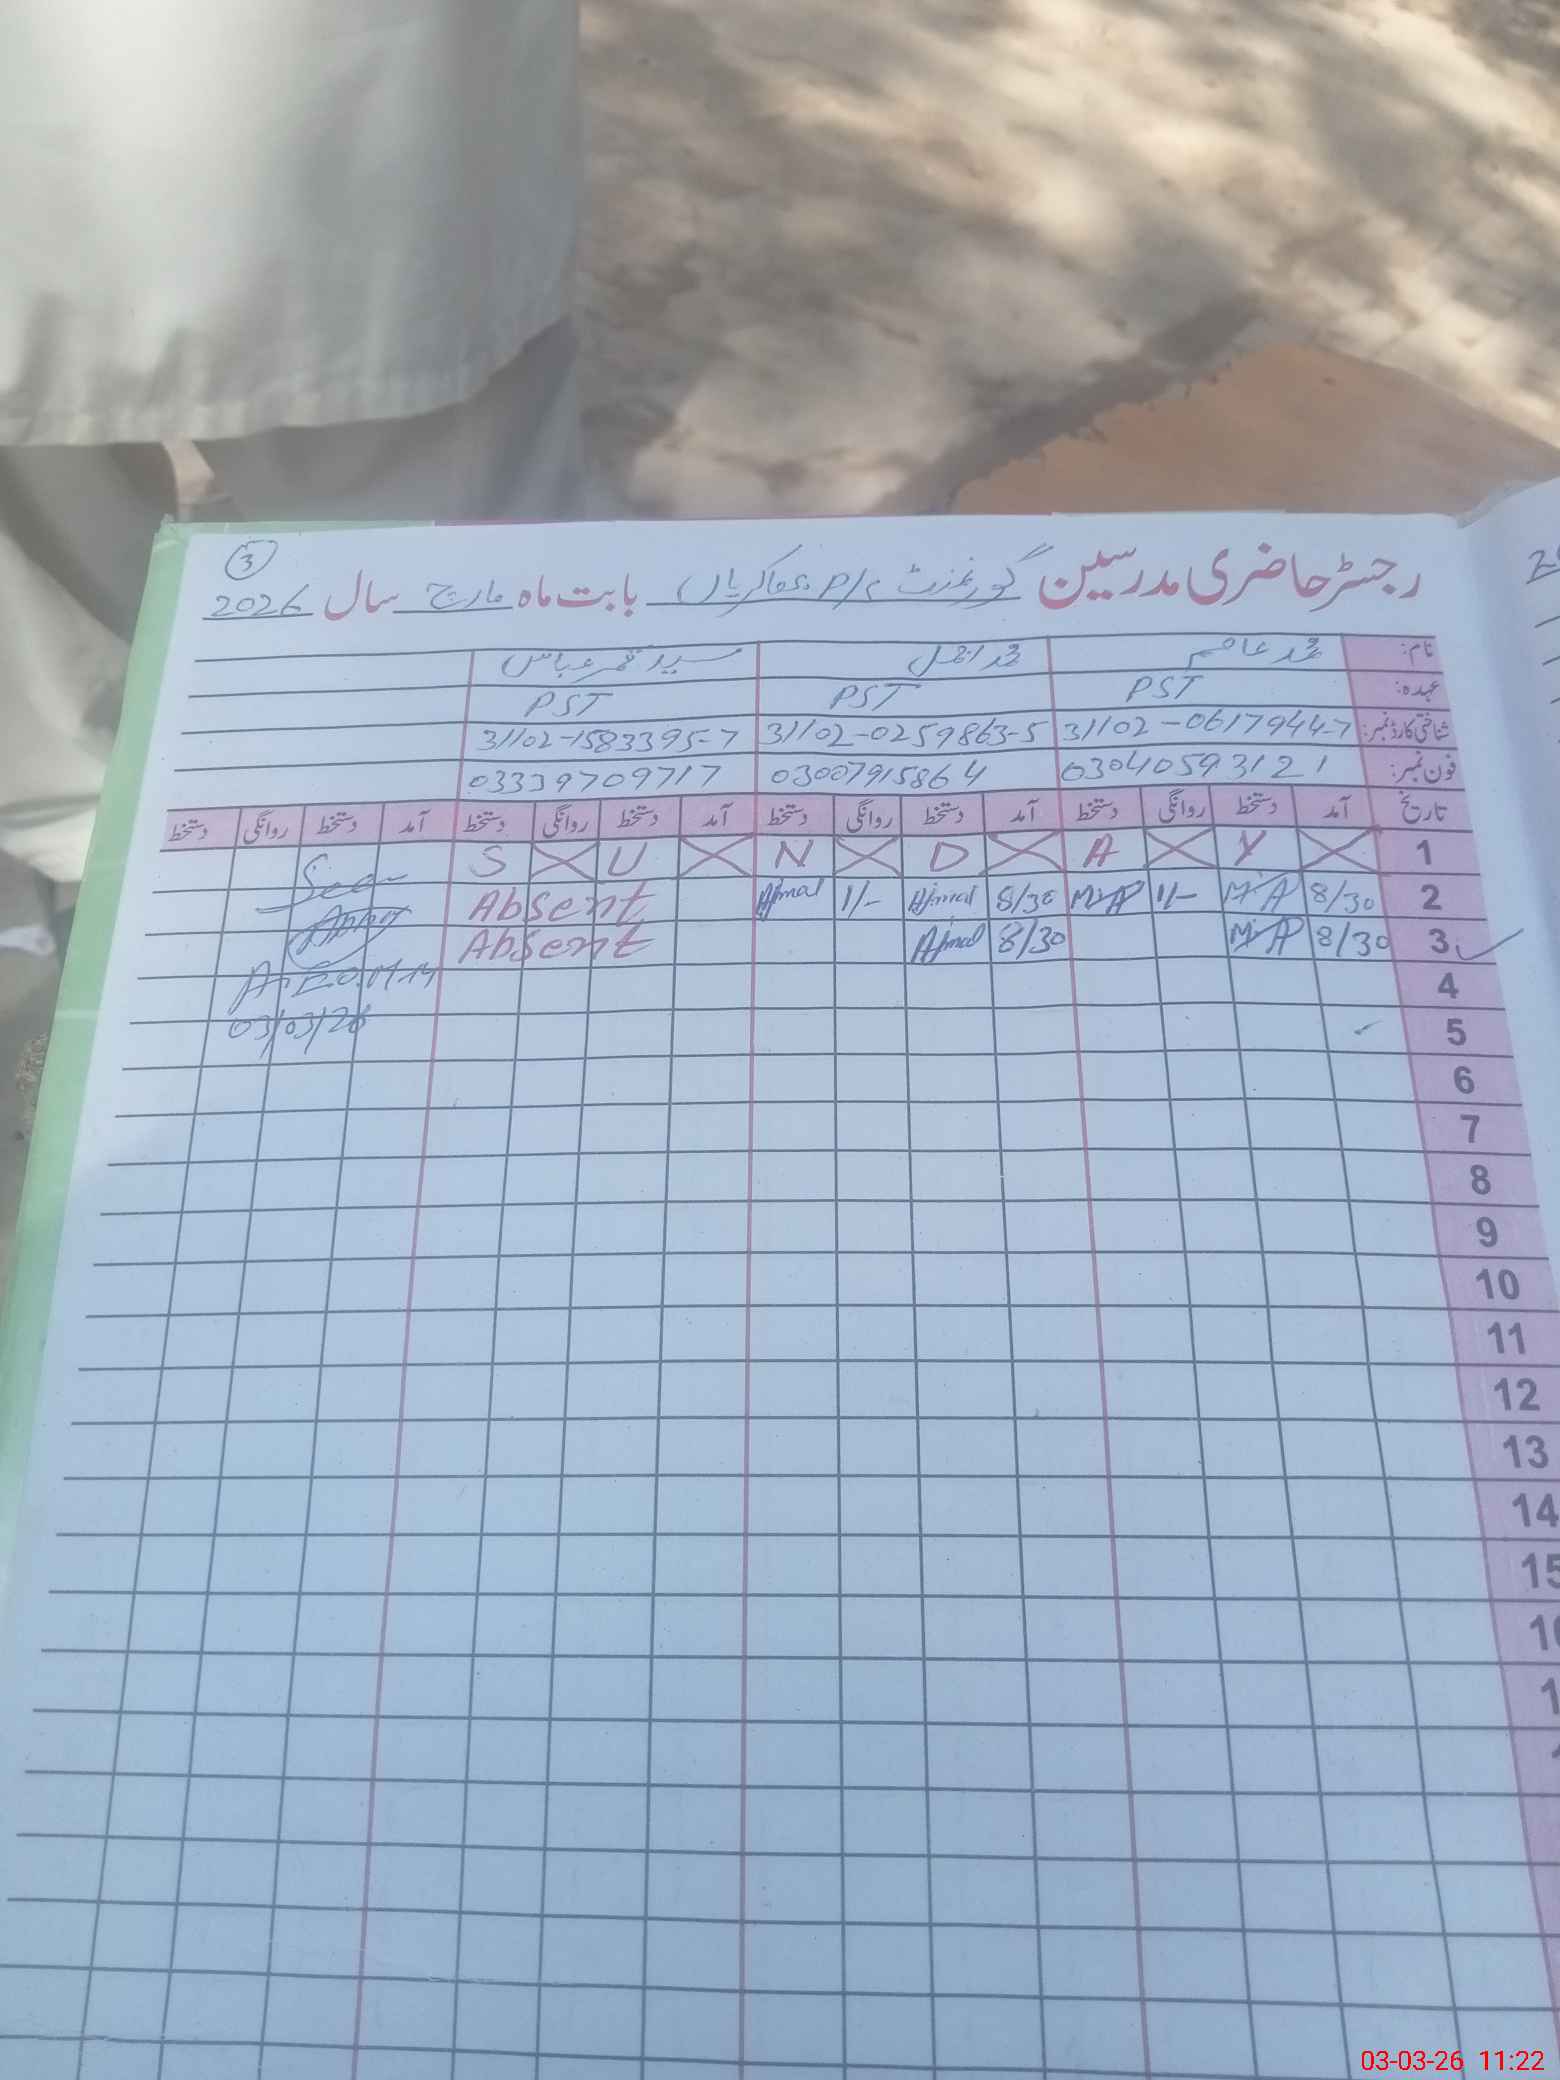 3
رجسٹر حاضری مدرسین گورنمنٹ P/S بابت ماہ مارچ سال 2026
نام: محمد عاصم محمد اجمل سید قمر عباس
عہدہ: PST PST PST
شناختی کارڈ نمبر: 31102-0617944-7 31102-0259863-5 31102-1583395-7
فون نمبر: 03040593121 03007915864 03339709717
تاریخ آمد دستخط روانگی دستخط آمد دستخط روانگی دستخط آمد دستخط روانگی دستخط آمد دستخط روانگی دستخط
S U N D A Y 1
Seen
Absent Ajmal 1/- Ajmal 8/30 M.A 1/- M.A 8/30 2
Absent Ajmal 8/30 M.A 8/30 3
4
03/03/26 5
6
7
8
9
10
11
12
13
14
15
03-03-26 11:22